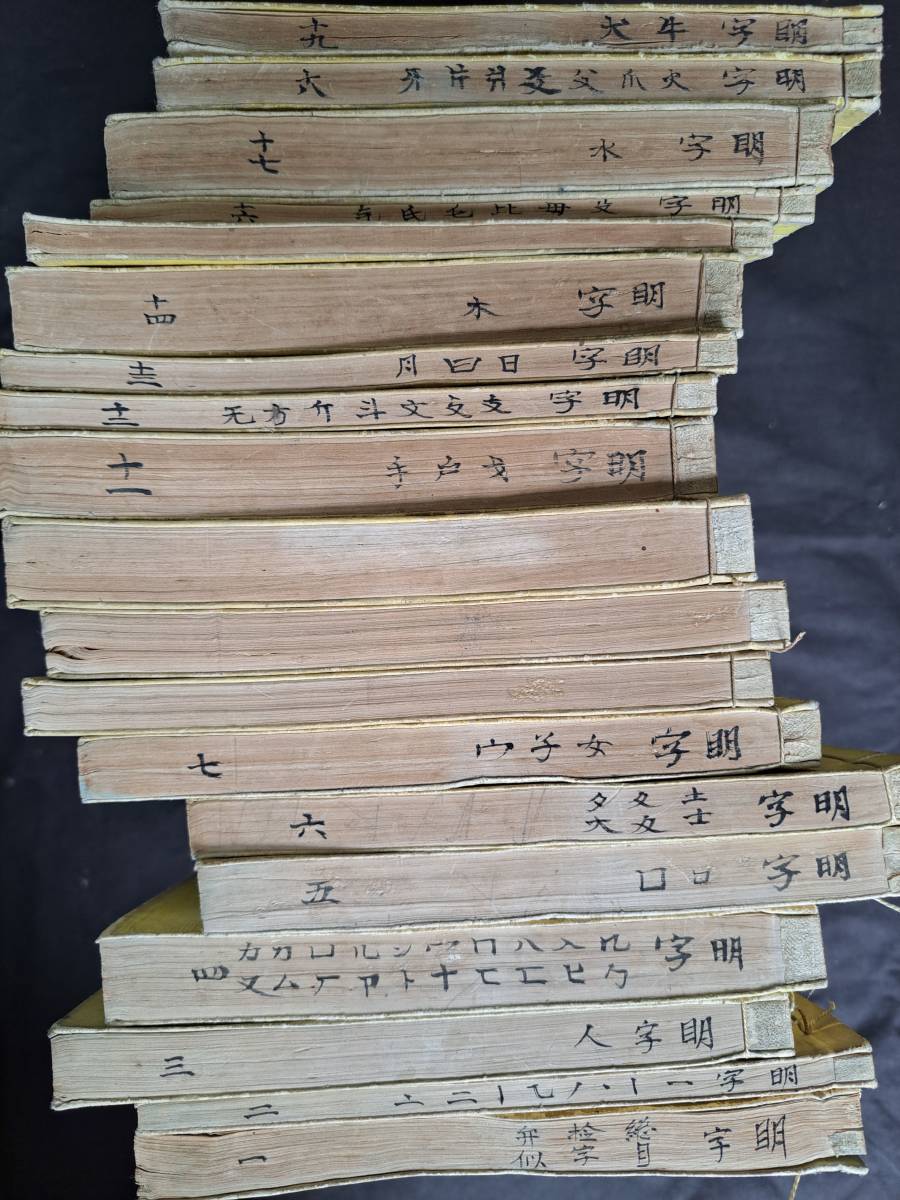 眀字 牛犬 十九
眀字 火爪父爻爿片牙 十八
眀字 水 十七
眀字 殳毋比毛氏气 十六
眀字 木 十四
眀字 日曰月 十三
眀字 支攴文斗斤方无 十二
眀字 戈户手 十一
眀字 女子宀 七
眀字 土士夂夊夕大 六
眀字 口囗 五
眀字 儿入八冂冖冫几凵刀力
勹匕匚匸十卜卩厂厶又 四
眀字 人 三
眀字 一丨丶丿乙亅二亠 二
眀字 緫目 捡字 弁似 一